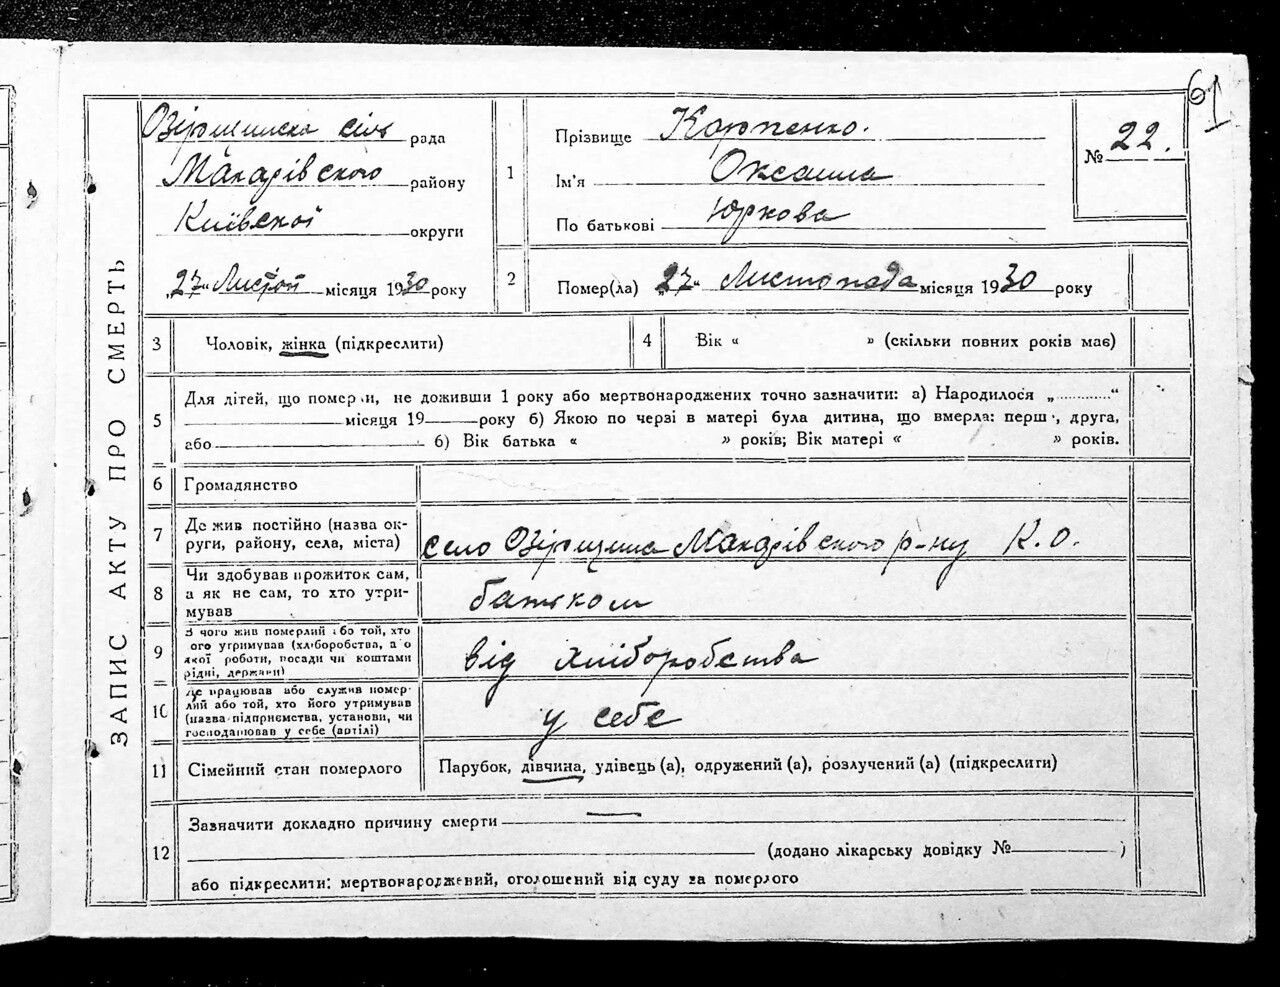 61
Озірщинска сіль рада
Макарівського району
Київської округи
„27" Листоп місяця 1930 року
1
Прізвище Карпенко.
Ім'я Оксана
По батькові Юркова
№ 22.
2
Помер(ла) „27" Листопада місяця 1930 року
ЗАПИС АКТУ ПРО СМЕРТЬ
3 Чоловік, жінка (підкреслити)
4 Вік « » (скільки повних років має)
5
Для дітей, що померли, не доживши 1 року або мертвонароджених точно зазначити: а) Народилося „ "
місяця 19 року б) Якою по черзі в матері була дитина, що вмерла: перша, друга,
або б) Вік батька « » років; Вік матері « » років.
6 Громадянство
7
Де жив постійно (назва ок-
руги, району, села, міста)
село Озірщина Макарівского р-ну К.О.
8
Чи здобував прожиток сам,
а як не сам, то хто утри-
мував
батьком
9
З чого жив померлий або той, хто
його утримував (хліборобства, або
якої роботи, посади чи коштами
рідні, держави)
від хліборобства
10
Де працював або служив помер-
лий або той, хто його утримував
(назва підприємства, установи, чи
господарював у себе (артілі)
у себе
11 Сімейний стан померлого
Парубок, дівчина, удівець (а), одружений (а), розлучений (а) (підкреслити)
12
Зазначити докладно причину смерти —
(додано лікарську довідку № )
або підкреслити: мертвонароджений, оголошений від суду за померлого